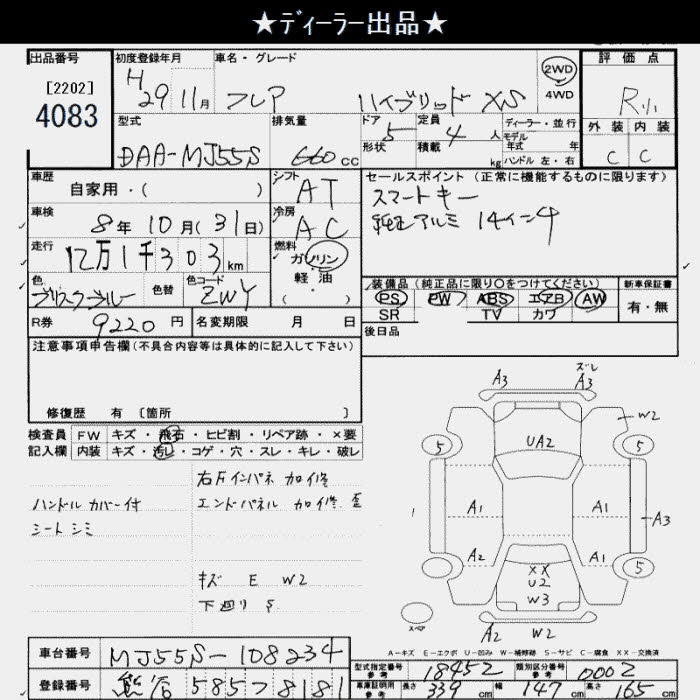 ★ディーラー出品★
出品番号 初度登録年月 車名・グレード 2WD 評価点
[2202] H 29年11月 フレア ハイブリッド XS 4WD
4083 型式 排気量 ドア 5 定員 4人 ディーラー・並行 外装 内装
DAA-MJ55S 660cc 形状 積載 kg モデル年式 年 C C
ハンドル 左・右
車歴 シフト セールスポイント(正常に機能するものに限ります)
自家用・( ) AT スマートキー
車検 8年10月(31日) 冷房 AC 純正アルミ 14インチ
走行 12万1千303km 燃料 ガソリン
色 色替 色コード 軽・油 装備品(純正品に限り○をつけてください) 新車保証書
ZWY ・( ) PS PW ABS エアB AW 有・無
R券 9220円 名変期限 月 日 SR TV カワ
注意事項申告欄(不具合内容等は具体的に記入して下さい) 後日品
修復歴 有〔箇所 〕
検査員 FW キズ・飛石・ヒビ割・リペア跡・×要
記入欄 内装 キズ・汚レ・コゲ・穴・スレ・キレ・破レ
右Fインパネ 加修
ハンドルカバー付 エンドパネル 加修 歪
シートシミ
キズ E W2
下廻り S
A3 ズレ A3
W2
5 UA2 5
A1 A1 A3
A2 A1
XX
U2 5
W3
スペア A2 W2
A-キズ E-エクボ U-凹み W-補修跡 S-サビ C-腐食 XX-交換済
車台番号 MJ55S-108234 型式指定番号 参考 18452 類別区分番号 参考 0002
登録番号 585 8181 車庫証明用 参考 長さ 339cm 幅 147cm 高さ 165cm